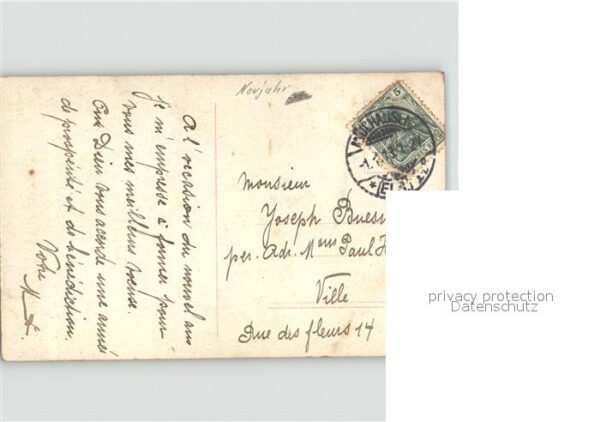 Neujahr
A l'occasion du nouvel an
je m'empresse à former pour
vous mes meilleurs voeux.
Que Dieu vous accorde une année
de prospérité et de bénédiction.
Votre
5
Monsieur
Joseph
per. Adr. Paul
Ville
Rue des fleurs 14
privacy protection
Datenschutz